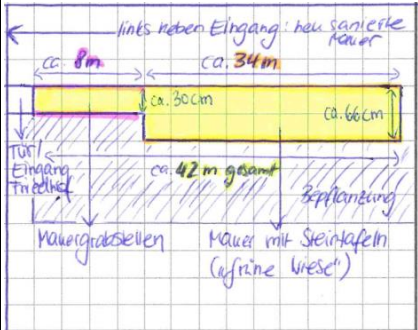 links neben Eingang: neu sanierte
Mauer
ca. 8m
ca. 34m
ca. 30cm
ca. 66cm
Tür/
Eingang
Friedhof
ca. 42 m gesamt
Bepflanzung
Mauergrabstellen
Mauer mit Steintafeln
("grüne Wiese")